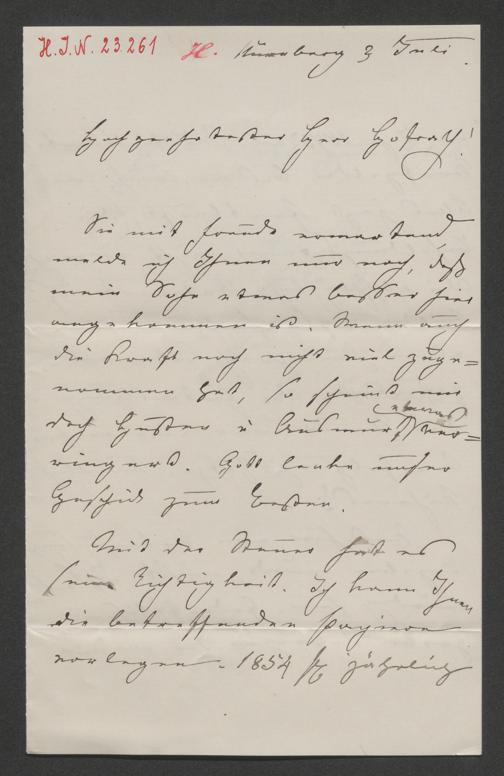 H. I. N. 23261 H. Nürnberg 3 Juli.
Hochgeehrtester Herr Hofrath!
Sie mit Freude erwartend,
melde ich Ihnen nur noch, daß
mein Sohn etwas besser hier
angekommen ist. Wenn auch
die Kraft noch nicht viel zuge=
nommen hat, so scheint mir
doch Husten u Auswurf etwas ver=
ringert. Gott lenke unser
Geschick zum Besten.
Mit der Steuer hat es
seine Richtigkeit. Ich kann Ihnen
die betreffenden Papiere
vorlegen. 1854 jährlich